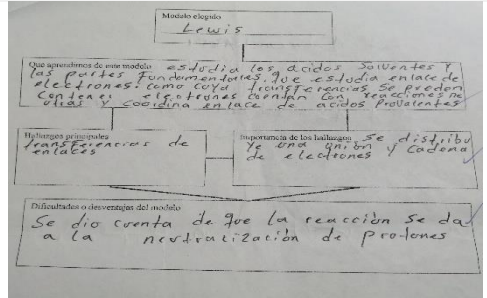 Modelo elegido
Lewis
Que aprendimos de este modelo estudia los acidos solventes y
las partes fundamentales. que estudia enlace de
electrones. como cuya transferencias se pueden
contener electrones cuentan con reacciones ne
utras y coordina enlace de acidos
Hallazgos principales
transferencias de
enlaces
Importancia de los hallazgos se distribu
ye una unión y cadena
de electrones
Dificultades o desventajas del modelo
Se dio cuenta de que la reacción se da
a la neutralización de protones